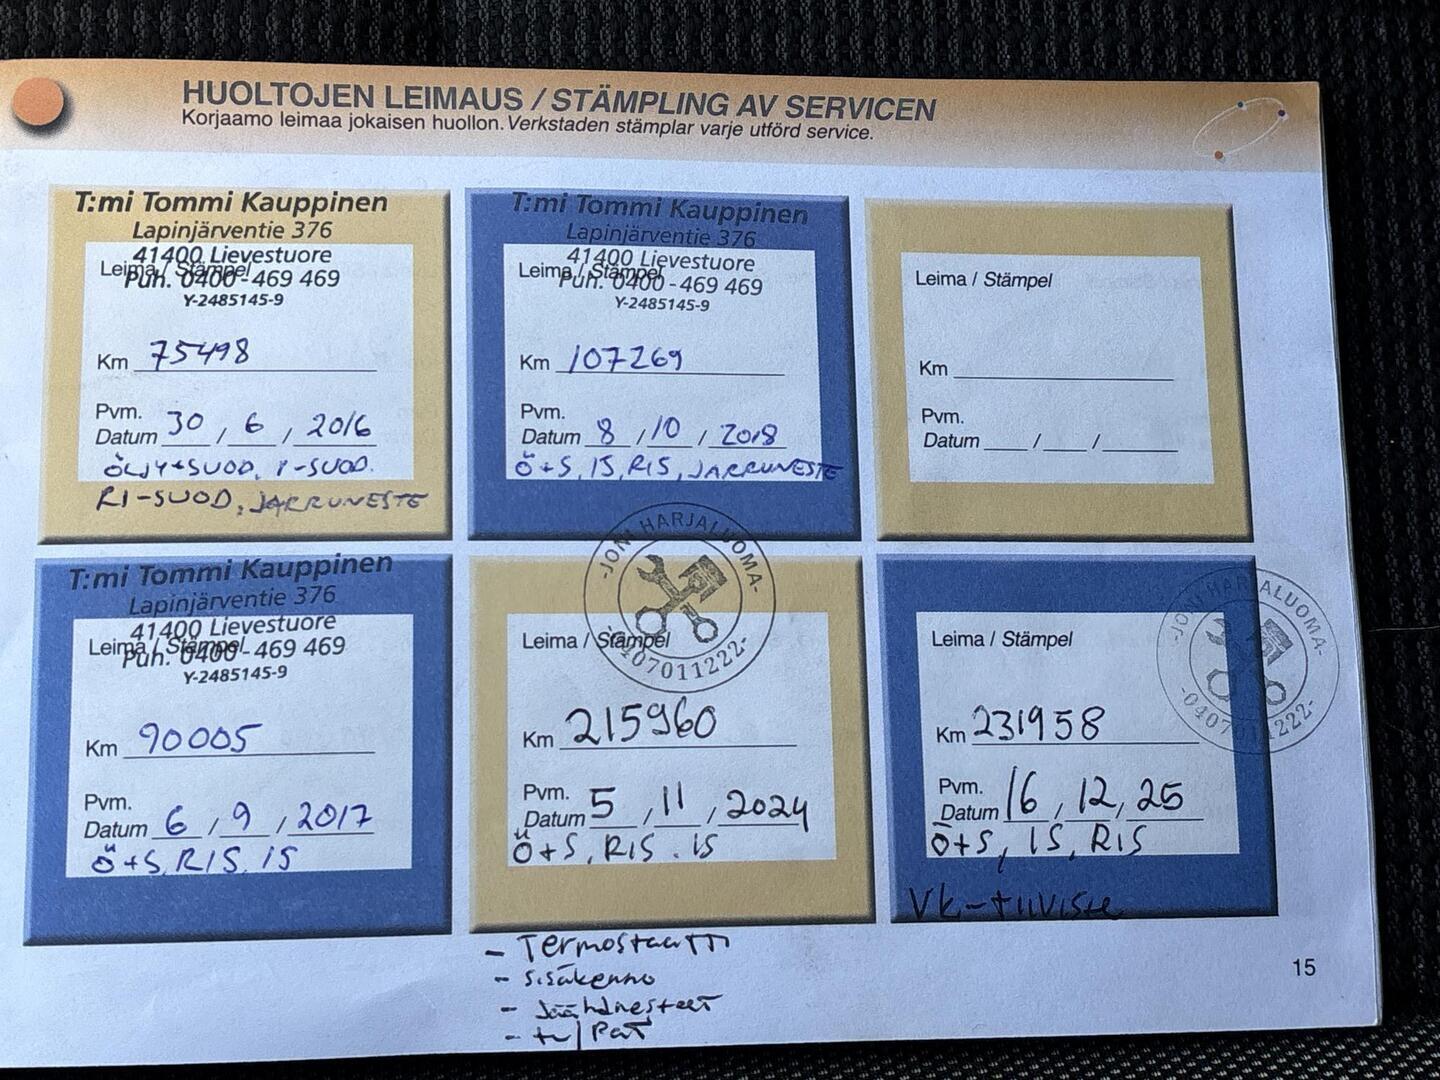 HUOLTOJEN LEIMAUS / STÄMPLING AV SERVICEN
Korjaamo leimaa jokaisen huollon. Verkstaden stämplar varje utförd service.
T:mi Tommi Kauppinen
Lapinjärventie 376
41400 Lievestuore
Leima / Stämpel
Puh. 0400-469 469
Y-2485145-9
Km 75498
Pvm.
Datum 30 / 6 / 2016
ÖLJY+SUOD, I-SUOD.
RI-SUOD, JARRUNESTE
T:mi Tommi Kauppinen
Lapinjärventie 376
41400 Lievestuore
Leima / Stämpel
Puh. 0400-469 469
Y-2485145-9
Km 107269
Pvm.
Datum 8 / 10 / 2018
Ö+S, IS, RIS, JARRUNESTE
Leima / Stämpel
Km
Pvm.
Datum / /
T:mi Tommi Kauppinen
Lapinjärventie 376
41400 Lievestuore
Leima / Stämpel
Puh. 0400-469 469
Y-2485145-9
Km 90005
Pvm.
Datum 6 / 9 / 2017
Ö+S, RIS, IS
-JONI HARJALUOMA-
-0407011222-
Leima / Stämpel
Km 215960
Pvm.
Datum 5 / 11 / 2024
Ö+S, RIS, IS
- Termostaatti
- sisäkenno
- Jäähdnesteet
-JONI HARJALUOMA-
-0407011222-
Leima / Stämpel
Km 231958
Pvm.
Datum 16 / 12 / 25
Ö+S, IS, RIS
Vk-tiiviste
15